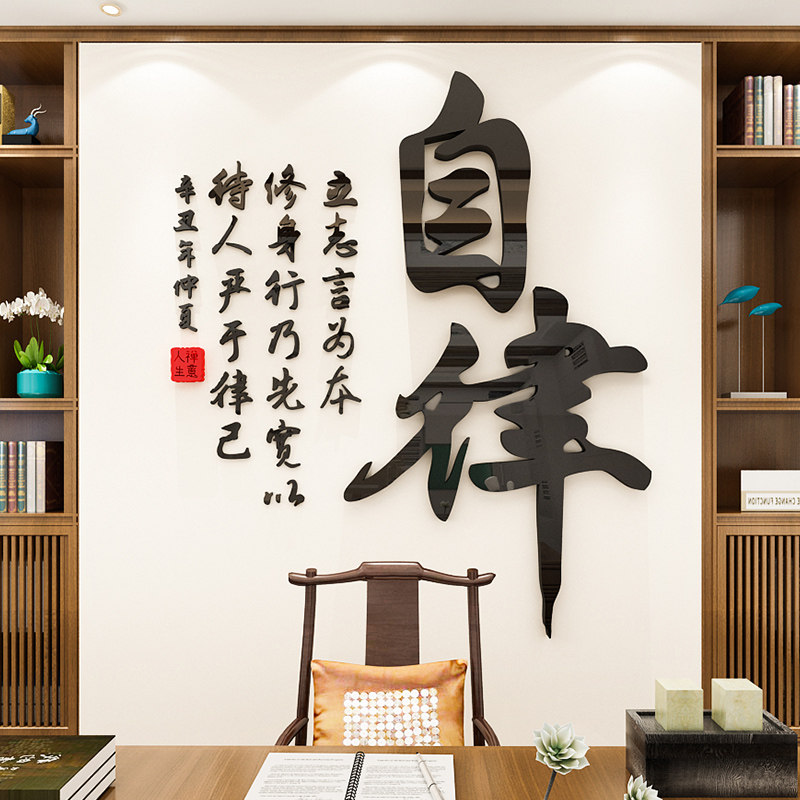 自律
立志言为本
修身行乃先宽以
待人严于律己
辛丑年仲夏
禅意
人生
CHANGE FUNCTION